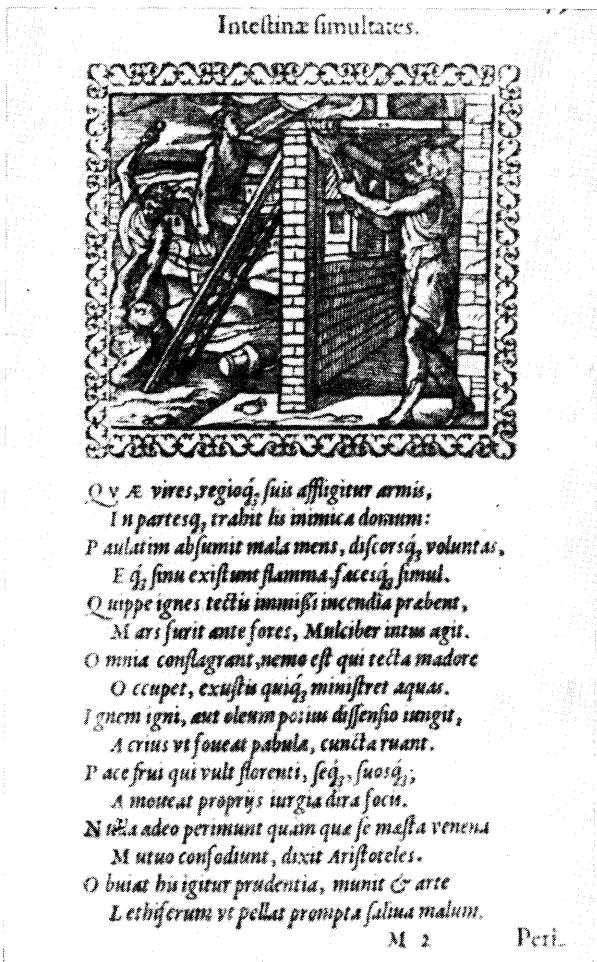 Inteſtinæ ſimultates.
Qv Æ vires, regioq́; ſuis affligitur armis,
In partesq́; trahit lis inimica domum:
Paulatim abſumit mala mens, diſcorsq́; voluntas,
Eq́; ſinu exiſtunt flamma, faceſq́; ſimul.
Quippe ignes tectis immiſsi incendia præbent,
Mars furit ante fores, Mulciber intus agit.
Omnia conflagrant, nemo eſt qui tecta madore
Occupet, exuſtis quiq́; miniſtret aquas.
Ignem igni, aut oleum potius diſſenſio iungit,
Acrius vt foueat pabula, cuncta ruant.
Pace frui qui vult florenti, ſeq́;, ſuosq́;,
Amoueat proprijs iurgia dira focis.
Nulla adeo perimunt quam quæ ſe maſta venena
Mutuo conſodiunt, dixit Ariſtoteles.
Obuiat his igitur prudentia, munit & arte
Lethiferum vt pellat prompta ſaliua malum.
M 2
Peri-